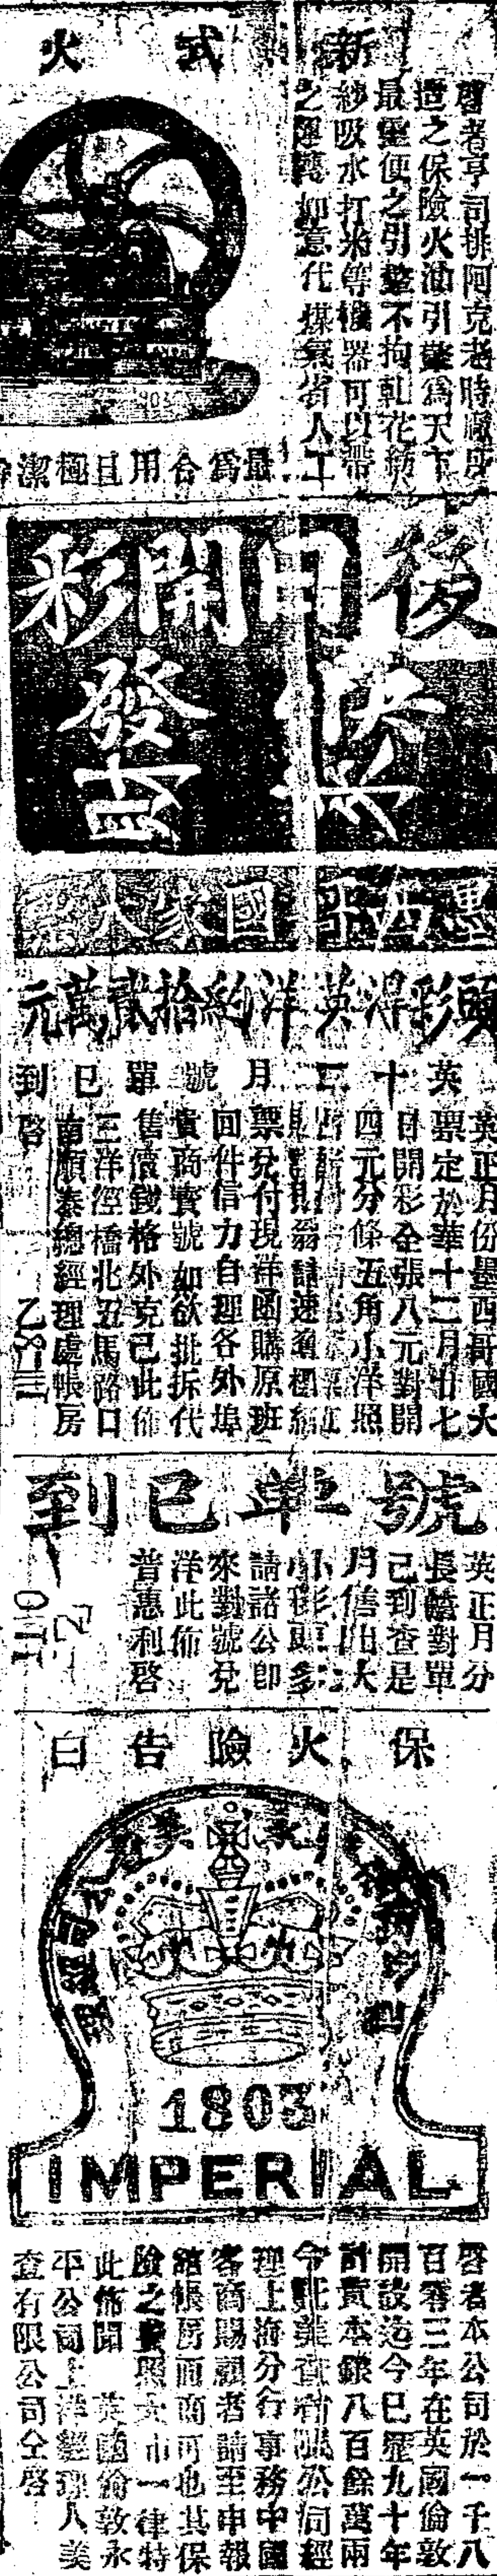 新式火
啓者亨司排阿克老時廠所
造之保險火油引擎爲天下
最靈便之引擎不拘軋花紡
紗吸水打米等機器可以帶
之運轉如意代煤氣省人工
最爲合用且極潔
後日開彩
快失
發吉
墨西哥國家大票
頭彩得英洋約拾貳萬元
英十二月號單已到
英正月份墨西哥國大
票定於華十二月廿七
日開彩全張八元對開
四元分條五角小洋照
財翁請速
票兌付現洋函購原班
回件信力自理各外埠
貴商寶號如欲批拆代
售價錢格外克己此佈
三洋涇橋北丑馬路口
南順泰總經理處帳房
啓
號單已到
英正月分
長號對單
已到查是
月售出大
小彩頭多
請諸公即
來對號兌
洋此佈
普惠利啓
保火險告白
1803
IMPERIAL
啓者本公司於一千八
百零三年在英國倫敦
開設迄今已歷九十年
計資本銀八百餘萬兩
今託美查有限公司經
理上海分行事務中國
客商賜顧者請至申報
館帳房面商可也其保
險之費照大市一律特
此佈聞 英國倫敦永
平公司上洋經理人美
查有限公司仝啓